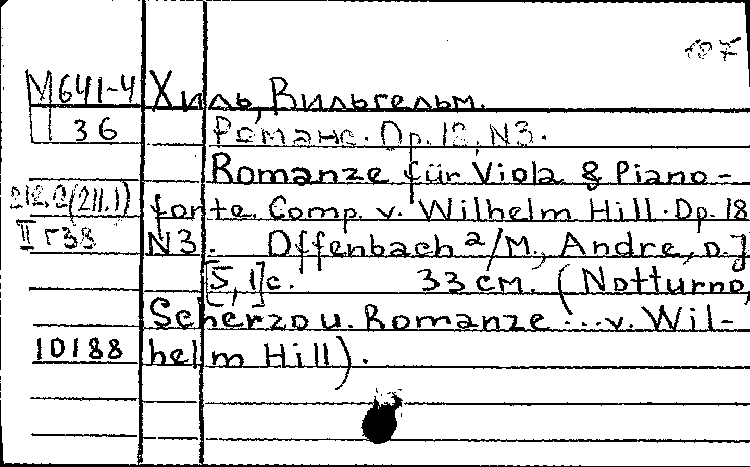 107
М641-4 Хиль, Вильгельм.
36 Романс. Op. 18, N3.
Romanze für Viola & Piano-
212.2(211.1) forte Comp. v. Wilhelm Hill. Op. 18
II г38 N3. Offenbach a/M., Andre, o. J
[5,1]c. 33 см. (Notturno,
Scherzo u. Romanze ... v. Wil-
10188 helm Hill).